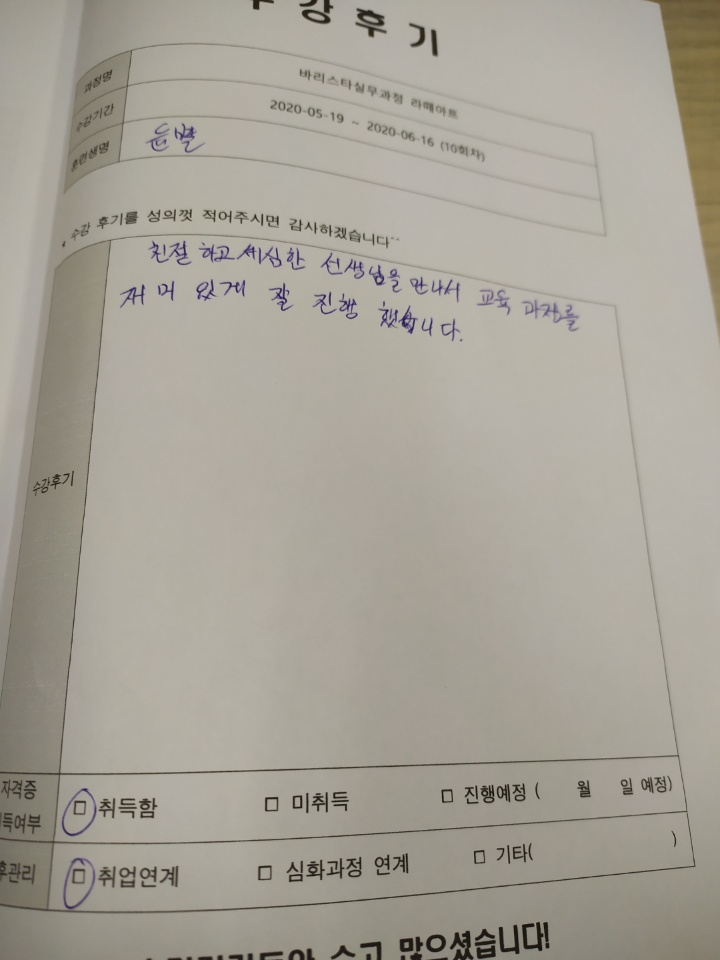 수강후기
과정명 바리스타실무과정 라떼아트
수강기간 2020-05-19 ~ 2020-06-16 (10회차)
훈련생명
* 수강 후기를 성의껏 적어주시면 감사하겠습니다^^
친절하고 세심한 선생님을 만나서 교육 과정을
재미 있게 잘 진행 했습니다.
수강후기
자격증 □ 취득함 □ 미취득 □ 진행예정 ( 월 일 예정)
득여부
후관리 □ 취업연계 □ 심화과정 연계 □ 기타( )
수고 많으셨습니다!